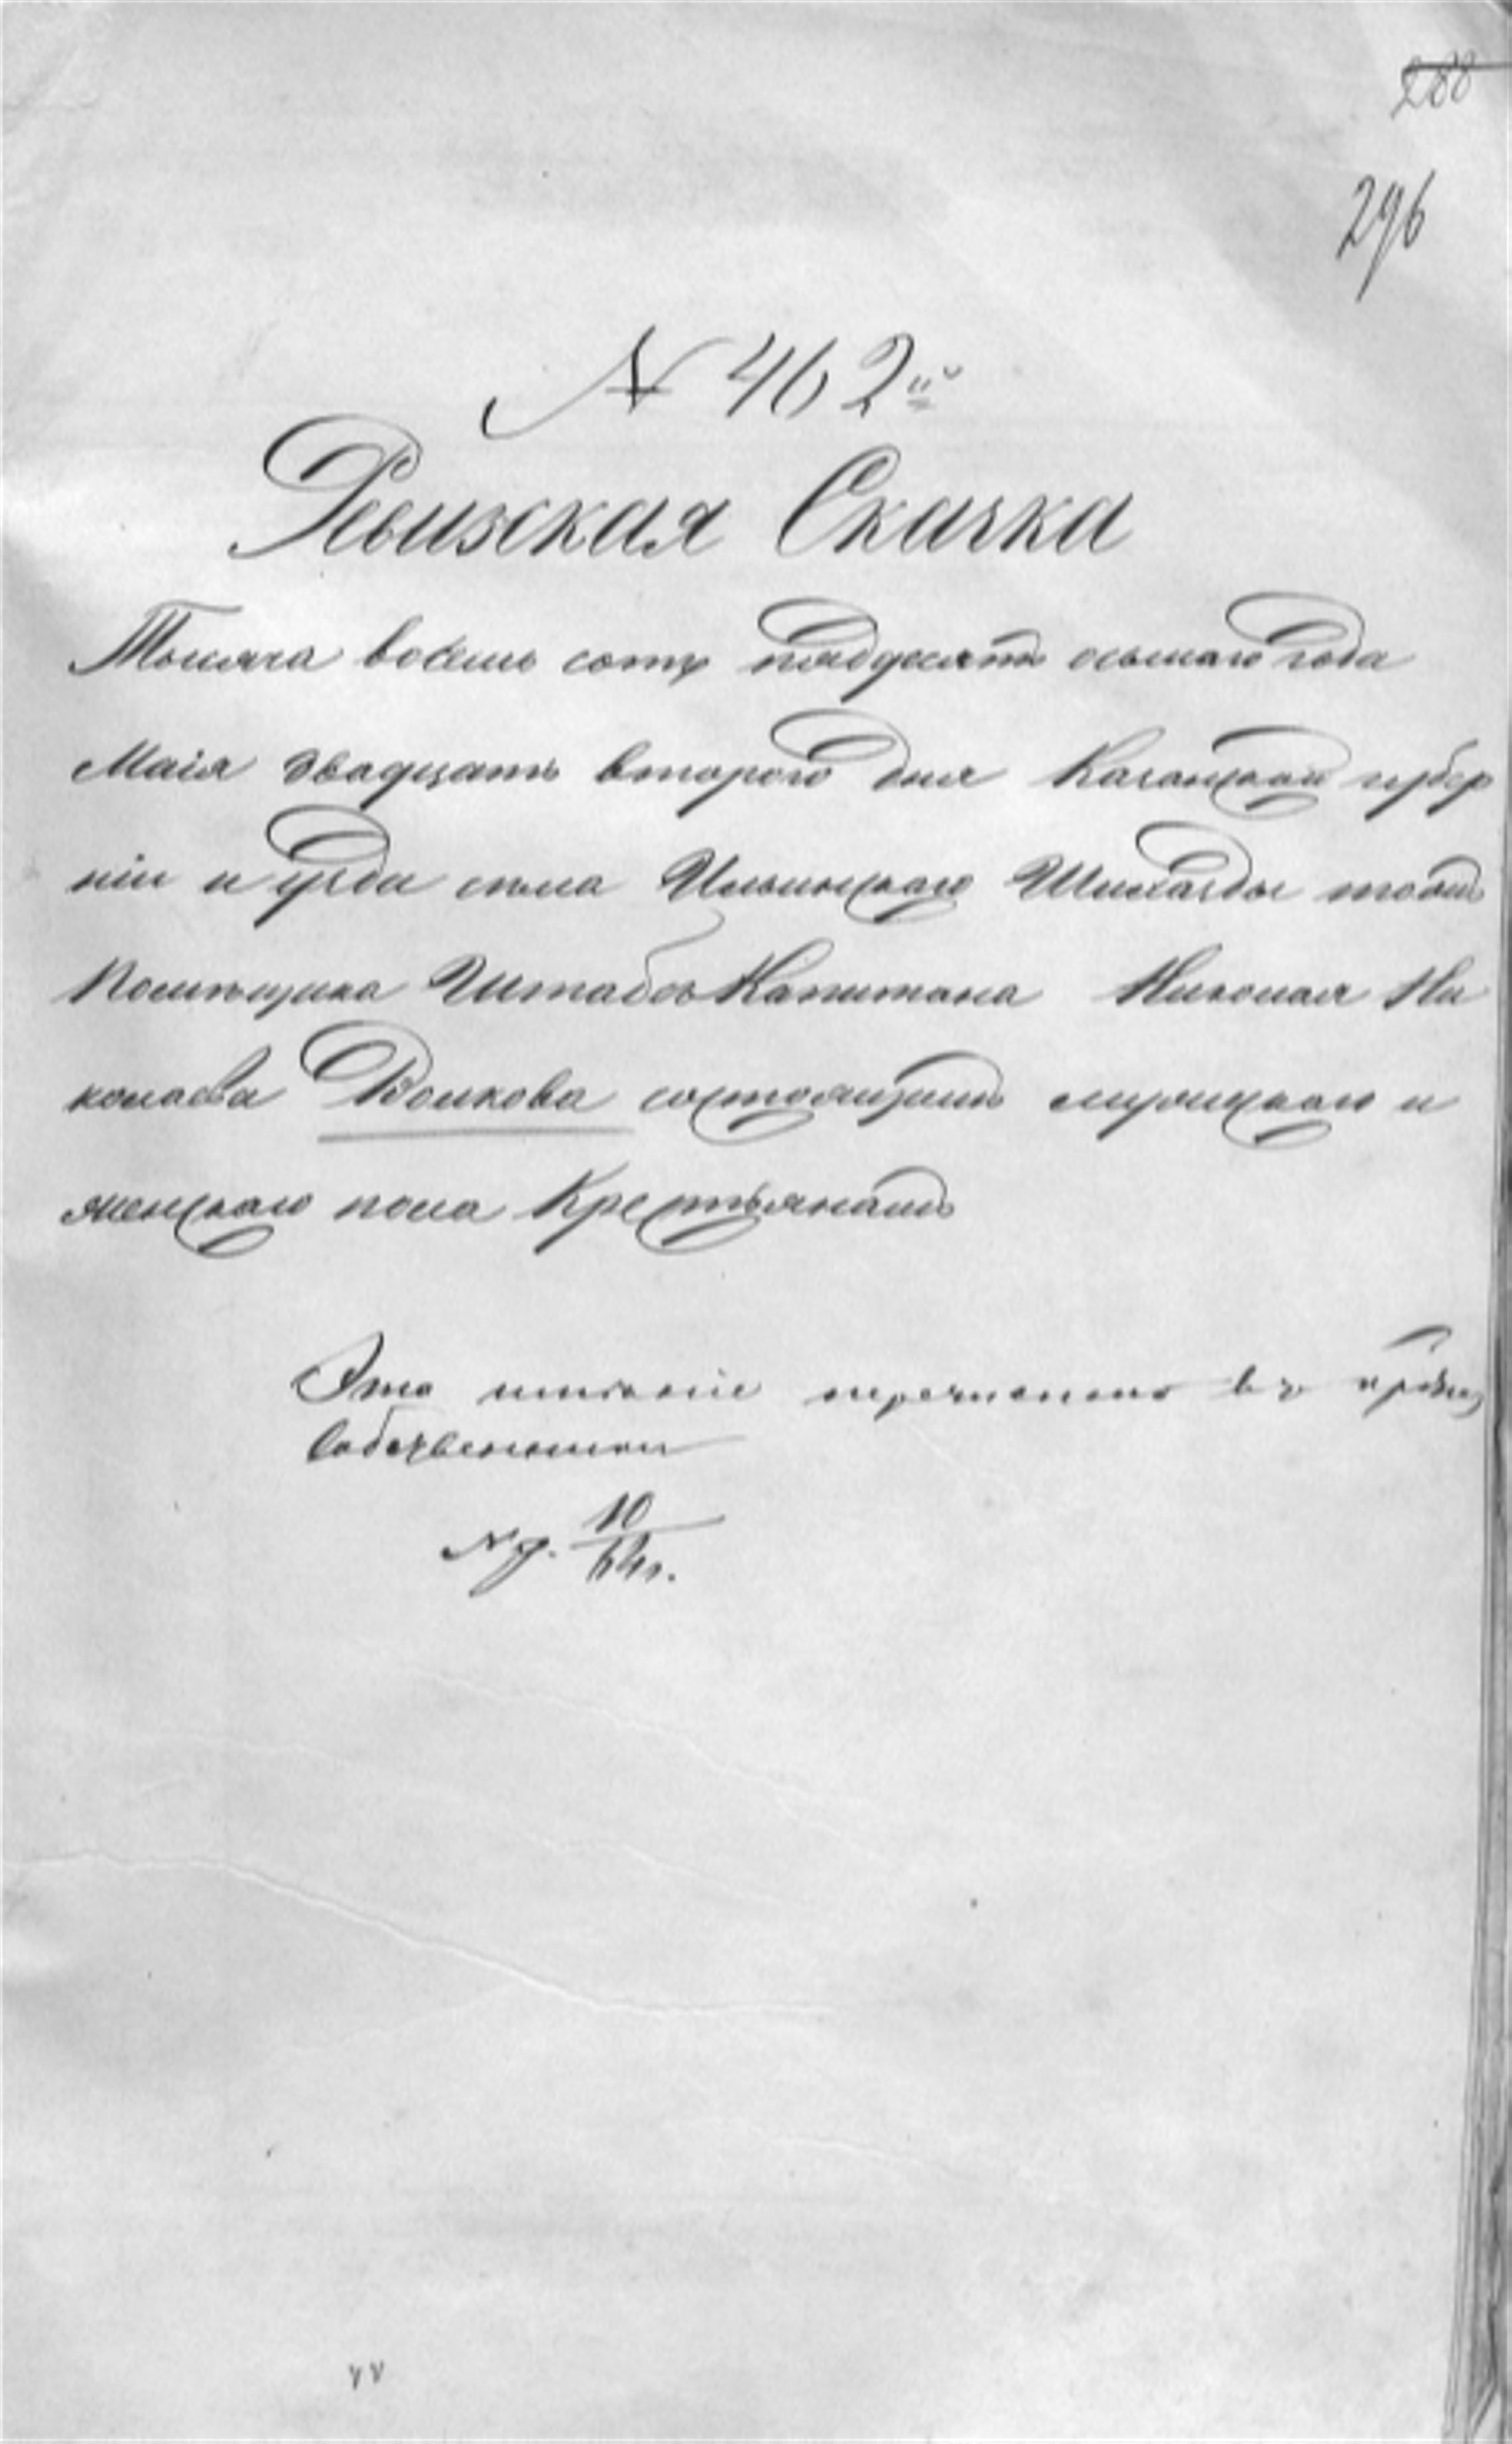 288
296
№ 462й
Ревизская Скачка
Тысяча восемь сотъ пяддесятъ осьмаго года
Маія двадцать втораго дня Казанской губер
ніи и уѣзда села Ильинскаго Шигалды тожъ
Помѣщика Штабсъ Капитана Николая Ни
колаева Волкова состоящимъ мужскаго и
женскаго пола Крестьянамъ
Это имѣніе перечислено въ
Собственники
10
64г.